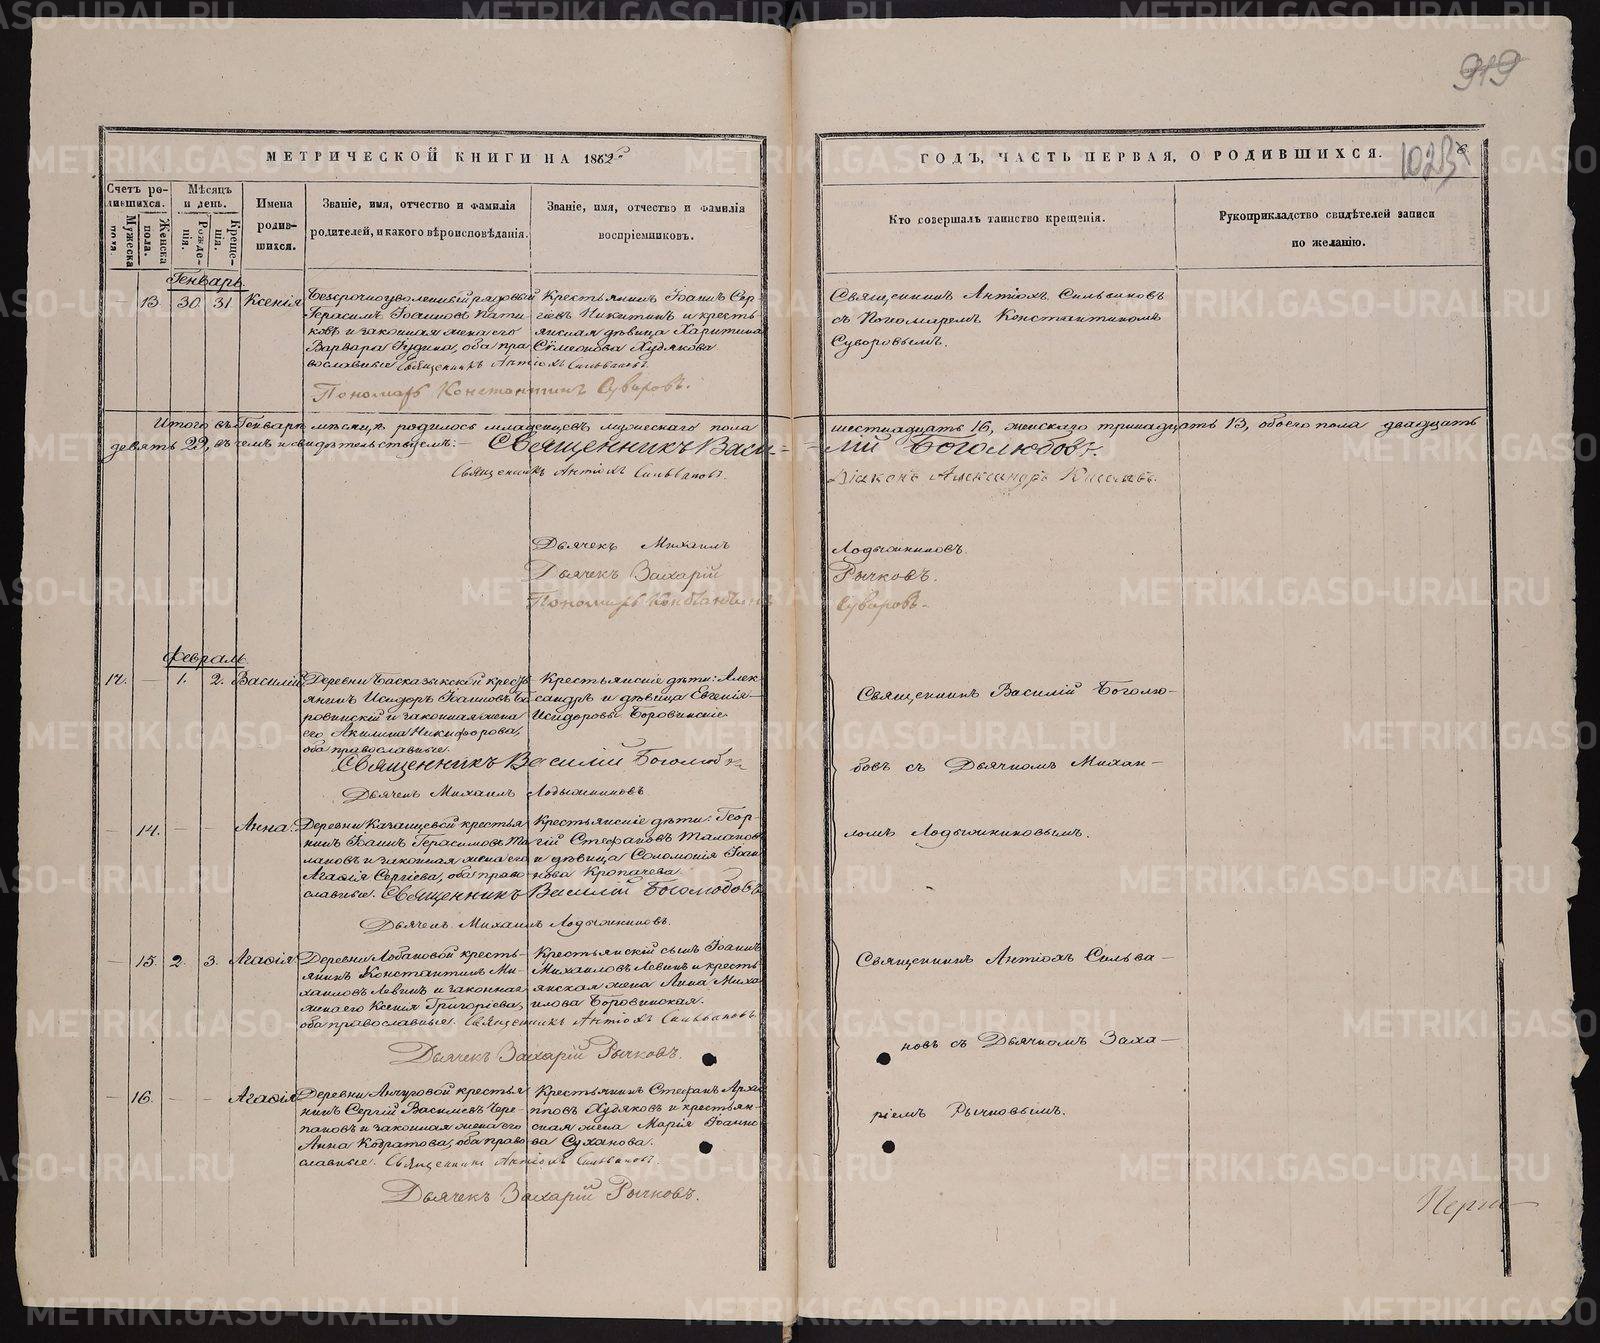 919
МЕТРИЧЕСКОЙ КНИГИ НА 1882й
ГОДЪ, ЧАСТЬ ПЕРВАЯ, О РОДИВШИХСЯ.
1023
Счетъ ро-
дившихся.
Мужеска
пола.
Женска
пола.
Мѣсяцъ
и день.
Рожде-
нія.
Креще-
нія.
Имена
родив-
шихся.
Званіе, имя, отчество и фамилія
родителей, и какого вѣроисповѣданія.
Званіе, имя, отчество и фамилія
воспріемниковъ.
Кто совершалъ таинство крещенія.
Рукоприкладство свидѣтелей записи
по желанію.
Генварь
13. 30 31 Ксенія
Безсрочноуволенный рядовый
Герасимъ Іоанновъ
и законная жена его
Варвара оба пра
вославные Священникъ Антіохъ Сильвановъ.
Пономарь Константинъ Суворовъ.
Крестьянинъ Іоаннъ Сер-
гіевъ Никитинъ и кресть-
янская дѣвица Харитина
Сѵмеонова Худякова
Священникъ Антіохъ Сильвановъ
съ Пономаремъ Константиномъ
Суворовымъ.
Итого въ Генварѣ мѣсяцѣ родилось младенцевъ мужескаго пола шестнадцать 16, женскаго тринадцать 13, обоего пола двадцать
девять 29, въ чемъ и свидѣтельствуемъ:— Священникъ Васи- =лій Боголюбовъ.
Священникъ Антіохъ Сильвановъ.
Діаконъ Александръ
Дьячекъ Михаилъ Лодыжниковъ.
Дьячекъ Захарій Рычковъ.
Пономарь Константинъ Суворовъ.
Февраль.
17. — 1. 2. Василій
Деревни Баской крестъ-
янинъ Исидоръ Іоанновъ Бо
ровинскій и законная жена
его Акилина Никифорова,
оба православные.
Священникъ Василій Боголюбовъ
Дьячекъ Михаилъ Лодыжниковъ.
Крестьянскіе дѣти: Алек-
сандръ и дѣвица Евгенія
Исидоровы Боровинскіе.
Священникъ Василій Боголю-
бовъ съ Дьячкомъ Михаи-
ломъ Лодыжниковымъ.
— 14. — — Анна.
Деревни Казанцевой крестья
нинъ Іоаннъ Герасимовъ Та
лановъ и законная жена его
Агафія Сергіева, оба право
славные. Священникъ Василій Боголюбовъ
Дьячекъ Михаилъ Лодыжниковъ.
Крестьянскіе дѣти: Геор-
гій Стефановъ Талановъ
и дѣвица Соломонія Іоан
нова Кропачева
— 15. 2. 3. Агафія
Деревни Лобановой кресть-
янинъ Константинъ Ми-
хаиловъ Левинъ и законная
жена его Ксенія Григоріева,
оба православные. Священникъ Антіохъ Сильвановъ
Дьячекъ Захарій Рычковъ.
Крестьянскій сынъ Іоаннъ
Михаиловъ Левинъ и кресть
янская жена Анна Миха
илова Боровинская.
Священникъ Антіохъ Сильва-
новъ съ Дьячкомъ Заха-
ріемъ Рычковымъ.
— 16. — — Агафія
Деревни Анчуговой крестья
нинъ Сергій Василіевъ Чере-
пановъ и законная жена его
Анна Кодратова, оба право
славные. Священникъ Антіохъ Сильвановъ.
Дьячекъ Захарій Рычковъ.
Крестьянинъ Стефанъ Архи
пповъ Худяковъ и крестьян-
ская жена Марія Іоанно
ва Суханова.
METRIKI.GASO-URAL.RU